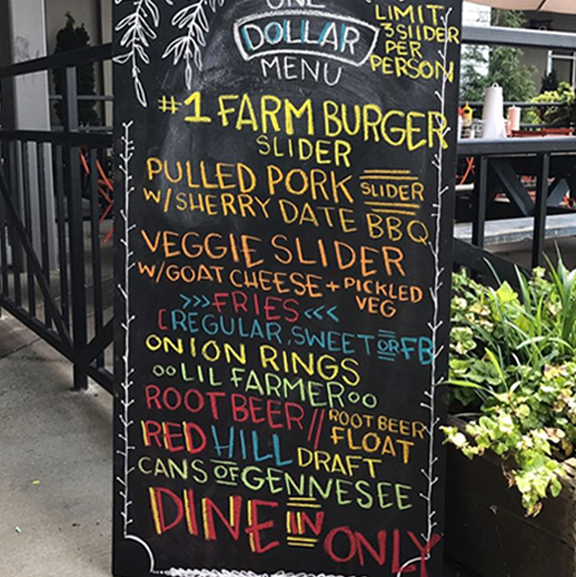 ONE
DOLLAR
MENU
LIMIT
3 SlIDER
PER
PERSON
#1 FARM BURGER
SLIDER
PULLED PORK SLIDER
W/SHERRY DATE BBQ
VEGGIE SLIDER
W/GOAT CHEESE + PICKLED
VEG
>>>FRIES<<<
[REGULAR, SWEET OR FB
ONION RINGS
ooLIL FARMERoo
ROOT BEER // ROOT BEER
FLOAT
RED HILL DRAFT
CANS OF GENNESEE
DINE IN ONLY